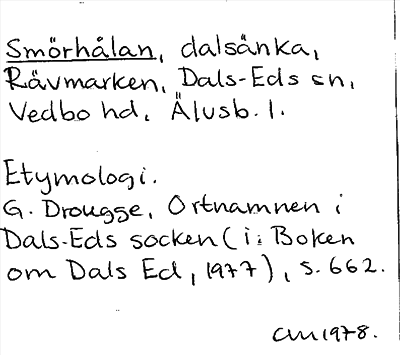 Smörhålan, dalsänka,
Rävmarken, Dals-Eds sn,
Vedbo hd, Älvsb. l.
Etymologi.
G. Drougge, Ortnamnen i
Dals-Eds socken (i: Boken
om Dals Ed, 1977), s. 662.
CM 1978.